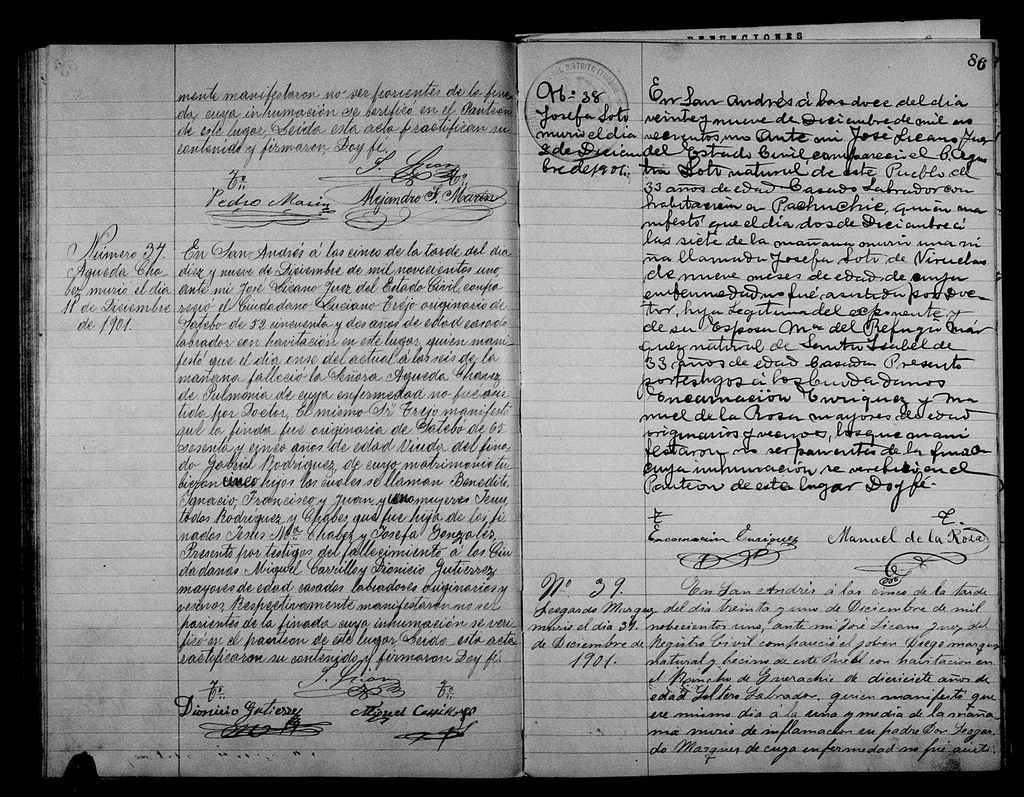 mente manifestaron no ser parientes de la fina
da, cuya inhumación se berificó en el Panteon
de este lugar. Leida esta acta ractificaron su
contenido y firmaron, Doy fé.
To. To.
Pedro Marin Alejandro F. Marin
Número 37.
Agueda Cha
bez murió el dia
de Diciembre
de 1901.
En San Andrés á las cinco de la tarde del dia
diez y nueve de Diciembre de mil novecientos uno,
ante mi José Licano Juez del Estado Civil compa
reció el Ciudadano Luciano Trejo originario de
Satebo de 52 cincuenta y dos años de edad casado
labrador con havitación en este lugar, quien mani
festó que el dia onse del actual á las seis de la
mañana falleció la Señora Agueda Chavez
de Pulmonia de cuya enfermedad no fué asis
tida por Doctor, El mismo Sr. Trejo manifestó
que la finda fué originaria de Satebo de 65
sesenta y cinco años de edad Viuda del fina
do Gabriel Rodriguez, de cuyo matrimonio tu
bieron hijos los cuales se llaman Benedito,
Ignacio, Francisco y Juan, y mugeres
todos Rodriguez y Chabez, que fué hija de los fi
nados Jesus Ma. Chabez y Josefa Gonzalez.
Presentó por testigos del fallecimiento á los Ciu
dadanos Miguel Carrillo y Dionicio Gutierrez
mayores de edad casados labradores originarios y
vecinos Respectivamente manifestaron no ser
parientes de la finada cuya inhumación se veri
ficó en el panteon de este lugar. Leida esta acta
ractificaron su contenido y firmaron Doy fé.
To. To.
Dionicio Gutierrez Miguel Carrillo
DEFUNCIONES
86
No. 38
Josefa Soto
murió el dia
2 de Diciem
bre de 1901.
En San Andrés á las doce del dia
veinte y nueve de Diciembre de mil no
vecientos uno Ante mi José Licano Juez
del Estado Civil comparecio el C.
Soto natural de este Pueblo de
33 años de edad Casado Labrador con
habitacion en Pachichic, quien ma
nifestó que el dia dos de Diciembre á
las siete de la mañana murio una ni
ña llamada Josefa Soto de Viruelas
de nueve meses de edad de cuya
enfermedad no fué asistida por Doc
tor, hija Legitima del exponente y
de su Esposa Ma. del Refugio Mar
quez natural de Santa Isabel de
33 años de edad Casada Presento
por testigos á los Ciudadanos
Encarnación Enriquez y Ma
nuel de la Rosa mayores de edad
originarios y vecinos, los que mani
festaron no ser parientes de la finada
cuya inhumación se verificó en el
Panteon de este lugar Doy fé.
T. T.
Encarnación Enriquez Manuel de la Rosa
No. 39.
Leogardo Marquez
murió el dia 31.
de Diciembre de
1901.
En San Andrés á las cinco de la tarde
del dia treinta y uno de Diciembre de mil
nobecientos uno, ante mi José Licano Juez del
Registro Civil compareció el joben Diego marquez
natural y becino de este Pueblo con havitacion en
el Rancho de Guerachic de diecisiete años de
edad Soltero Labrador, quien manifestó que
ese mismo dia á la una y media de la maña
na murio de inflamacion su padre Don Leogar
do Marquez de cuya enfermedad no fué asisti